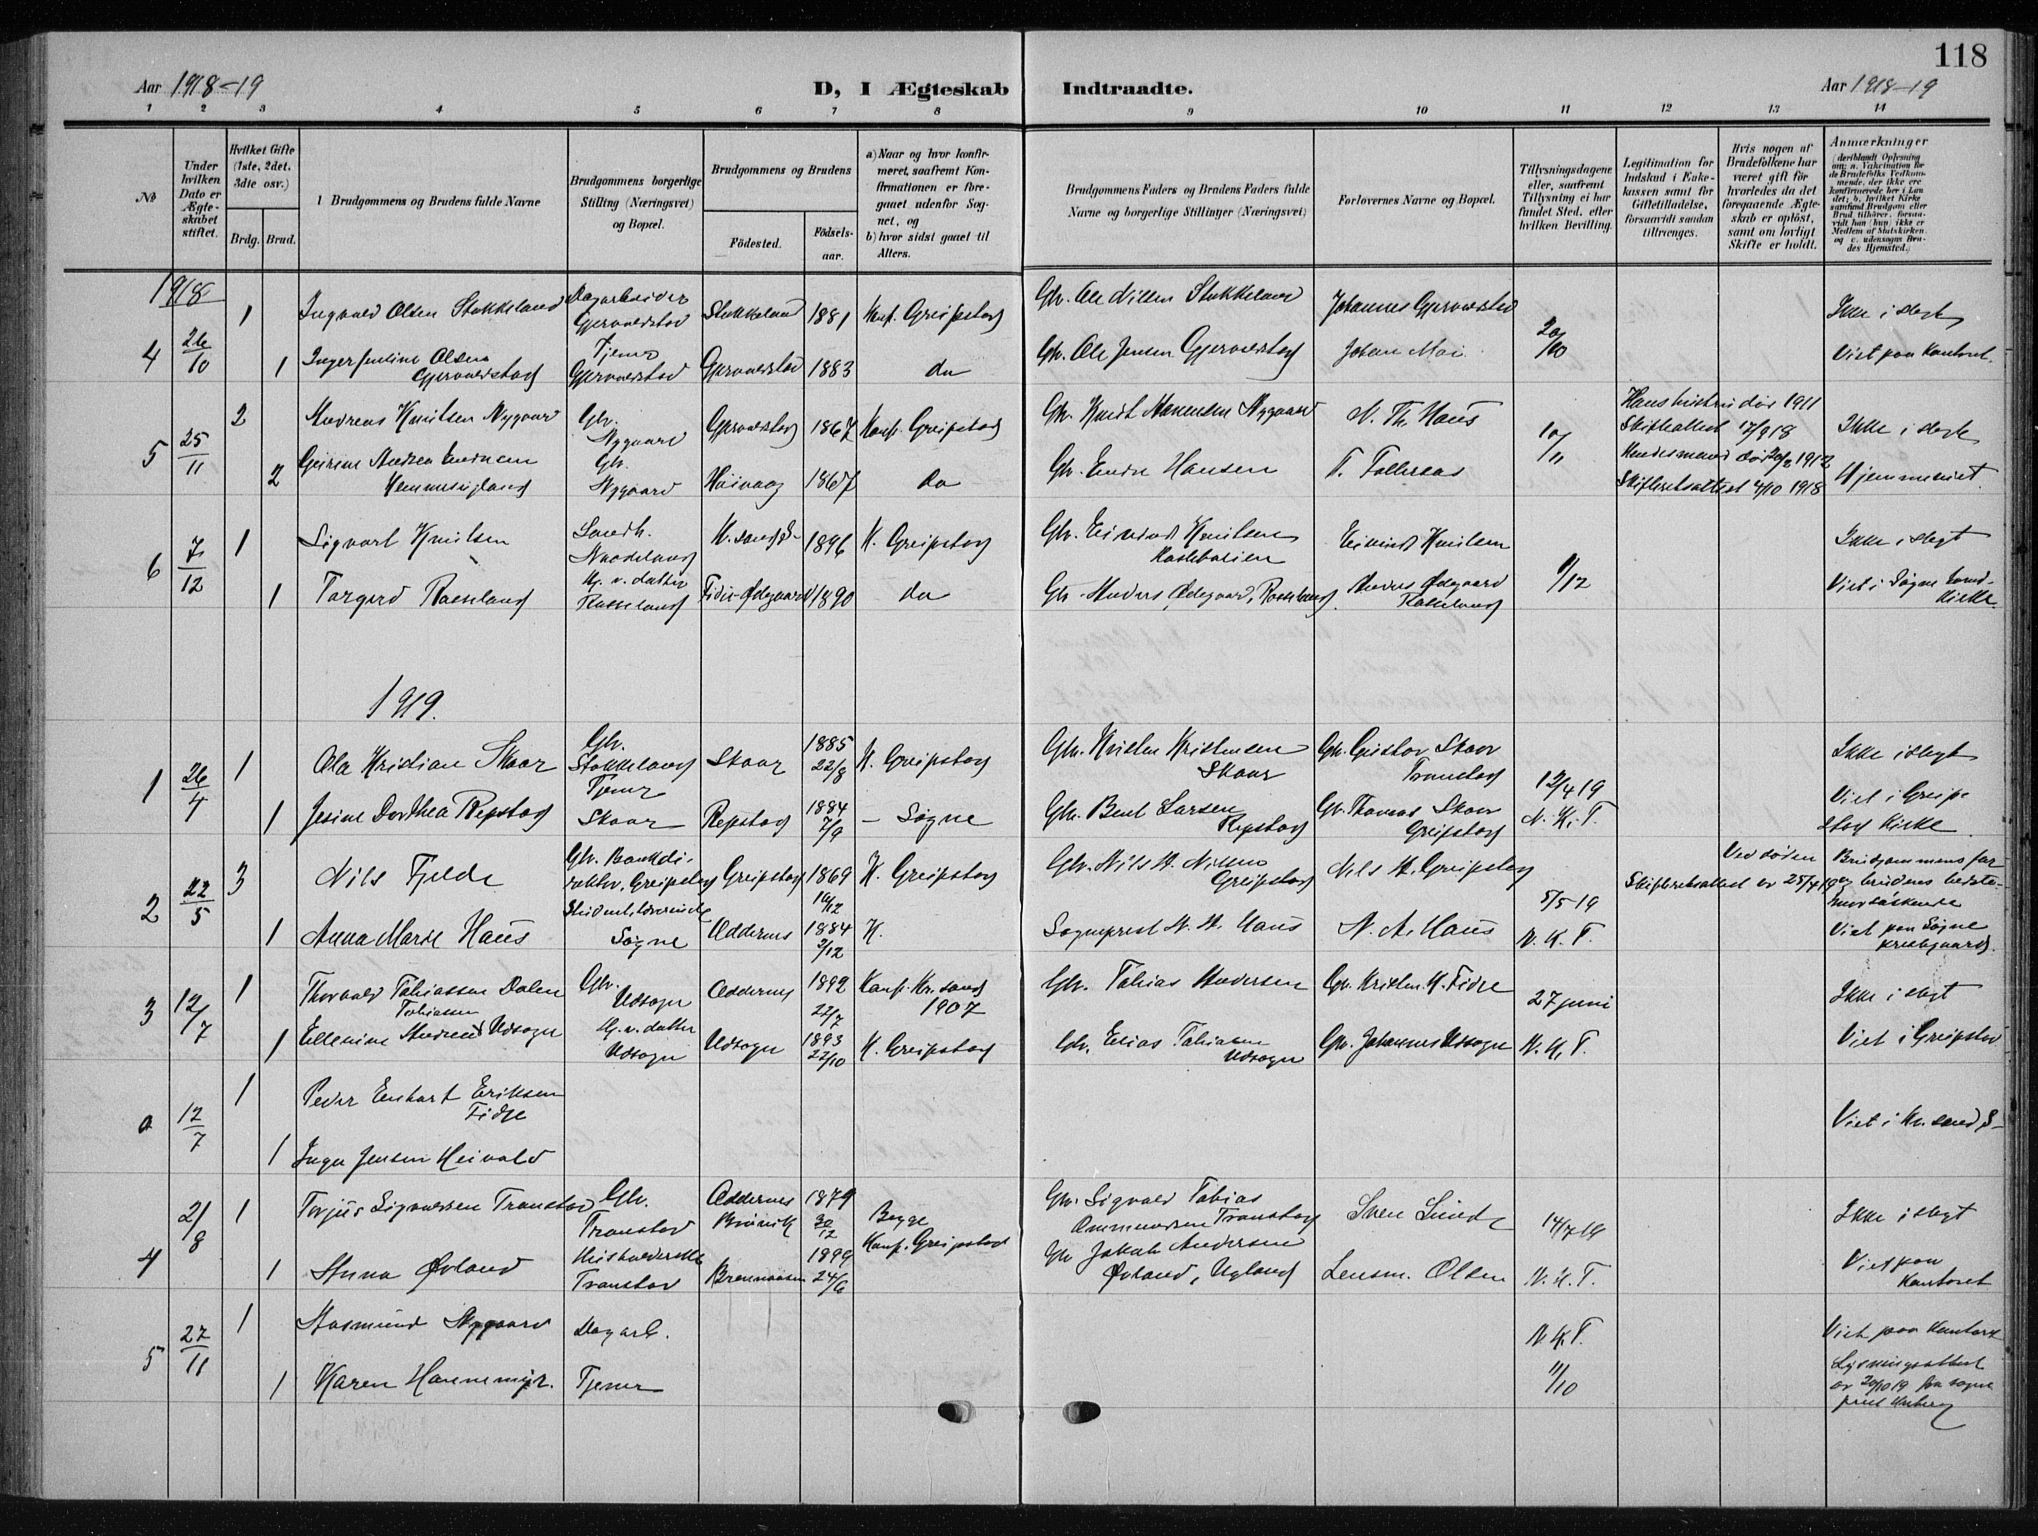 118
Aar 1918-19
D, I Ægteskab Indtraadte.
Aar 1918-19
1 2 3 4 5 6 7 8 9 10 11 12 13 14
No
Under hvilken Dato er Ægteskabet stiftet.
Hvilket Gifte (1ste, 2det, 3die osv.)
Brdg. Brud.
1 Brudgommens og Brudens fulde Navne
Brudgommens borgerlige Stilling (Næringsvei) og Bopæl.
Brudgommens og Brudens
Födested. Födselsaar.
a) Naar og hvor konfirmeret, saafremt Konfirmationen er foregaaet udenfor Sognet, og
b) hvor sidst gaaet til Alters.
Brudgommens Faders og Brudens Faders fulde Navne og borgerlige Stillinger (Næringsvei)
Forlovernes Navne og Bopæl.
Tillysningsdagene eller, saafremt Tillysning ei har fundet Sted, efter hvilken Bevilling.
Legitimation for Indskud i Enkekassen samt for Giftetilladelse, forsaavidt saadan tiltrænges.
Hvis nogen af Brudefolkene har været gift før hvorledes da det foregaaende Ægteskab er oplöst, samt om lovligt Skifte er holdt.
Anmærkninger
1918
4 26/10 1 Ingvald Olsen Stokkeland Dagarbeider Gjervoldstad Stokkeland 1881 Konf. Greipstad Gbr. Ole Nilsen Stokkeland Johannes Gjervoldstad 20/10 Ikke i slegt
1 Inger Juline Olsen Gjervoldstad Tjener Gjervoldstad Gjervoldstad 1883 do Gbr. Ole Jensen Gjervoldstad Johan Moi Viet paa Kontoret.
5 25/11 2 Andreas Knutsen Nygaard Gbr. Nygaard Gjervoldstad 1867 Konf. Greipstad Gbr. Knut Nygaard N. Th. Haus 10/11 Hans hustru død 1911 Skifteattest 17/9 18 Ikke i slegt
2 Andrea Gbr. Nygaard Höivaag 1867 do Gbr. Endre Hansen T. Hendes mand død 20/2 1912 Skifteretsattest 4/10 1918 Hjemmeviet.
6 7/12 1 Sigvart Knutsen K. sand S. 1896 K. Greipstad Gbr. Eivind Knutsen Eivind Knutsen 1/12 Ikke i slegt
1 Torgerd Rosseland Hj. v. datter Rosseland Fidje-Ødegaard 1890 do Gbr. Anders Ødegaard, Rosseland Anders Ødegaard Rosseland Viet i Søgne hovedkirke.
1919.
1 26/4 1 Ola Kristian Skaar Gbr. Stokkeland Skaar 1885 22/8 K. Greipstad Gbr. Kristen Kristensen Skaar Gbr. Gustav Skaar Transtad 12/4 19 Ikke i slegt
1 Jesine Dorthea Repstad Tjener Skaar Repstad 1884 7/9 - Søgne Gbr. Bent Larsen Repstad Gbr. Thomas Skaar Greipstad N. K. T. Viet i Greipstad Kirke.
2 22/5 3 Nils Fjelde Gbr. Bankdirektør, Greipstad Greipstad 1869 16/12 K. Greipstad Gbr. Nils N. Nilsen Greipstad Nils N. Greipstad 5/5 19 Ved døden Skifteretsattest av 25/4 19 Brudgommens far og brudens bedstemor søskende
1 Anna Marie Haus Student, lærerinde Søgne Oddernes 1884 2/12 K. Sogneprest N. A. Haus N. A. Haus N. K. T. Viet paa Søgne prestegaard.
3 12/7 1 Thorvald Tobiassen Dalen Gbr. Udsogn Oddernes 1892 22/7 Konf. Kr. sand 1907 Gbr. Tobias Andersen Gbr. Kristen K. Fidje 27 juni Ikke i slegt
1 Ellenine Andrea Tobiassen Udsogn Hj. v. datter Udsogn Udsogn 1893 22/10 K. Greipstad Gbr. Elias Tobiassen Udsogn Gbr. Johannes Udsogn N. K. T. Viet i Greipstad
a 12/7 1 Peder Enhart Eriksen Fidje
1 Inga Jensen Heivold Viet i Kr. sand S-
4 2/8 1 Torjus Sigvaldsen Transtad Gbr. Transtad Oddernes 1879 30/12 Begge Konf. Greipstad Gbr. Sigvald Tobias Transtad Sven Lunde 14/7 19 Ikke i slegt
1 Anna Øvland Husholderske Transtad Brennaasen 1899 24/6 Gbr. Jakob Andersen Øvland, Ugland Lensm. Olsen N. K. T. Viet paa Kontoret
5 27/11 1 Aasmund Nygaard Dagarb. N. K. T. Viet paa Kontoret
1 Karen Hannemyr. Tjener 11/10 Lysningsattest av 20/10 19 fra sogneprest